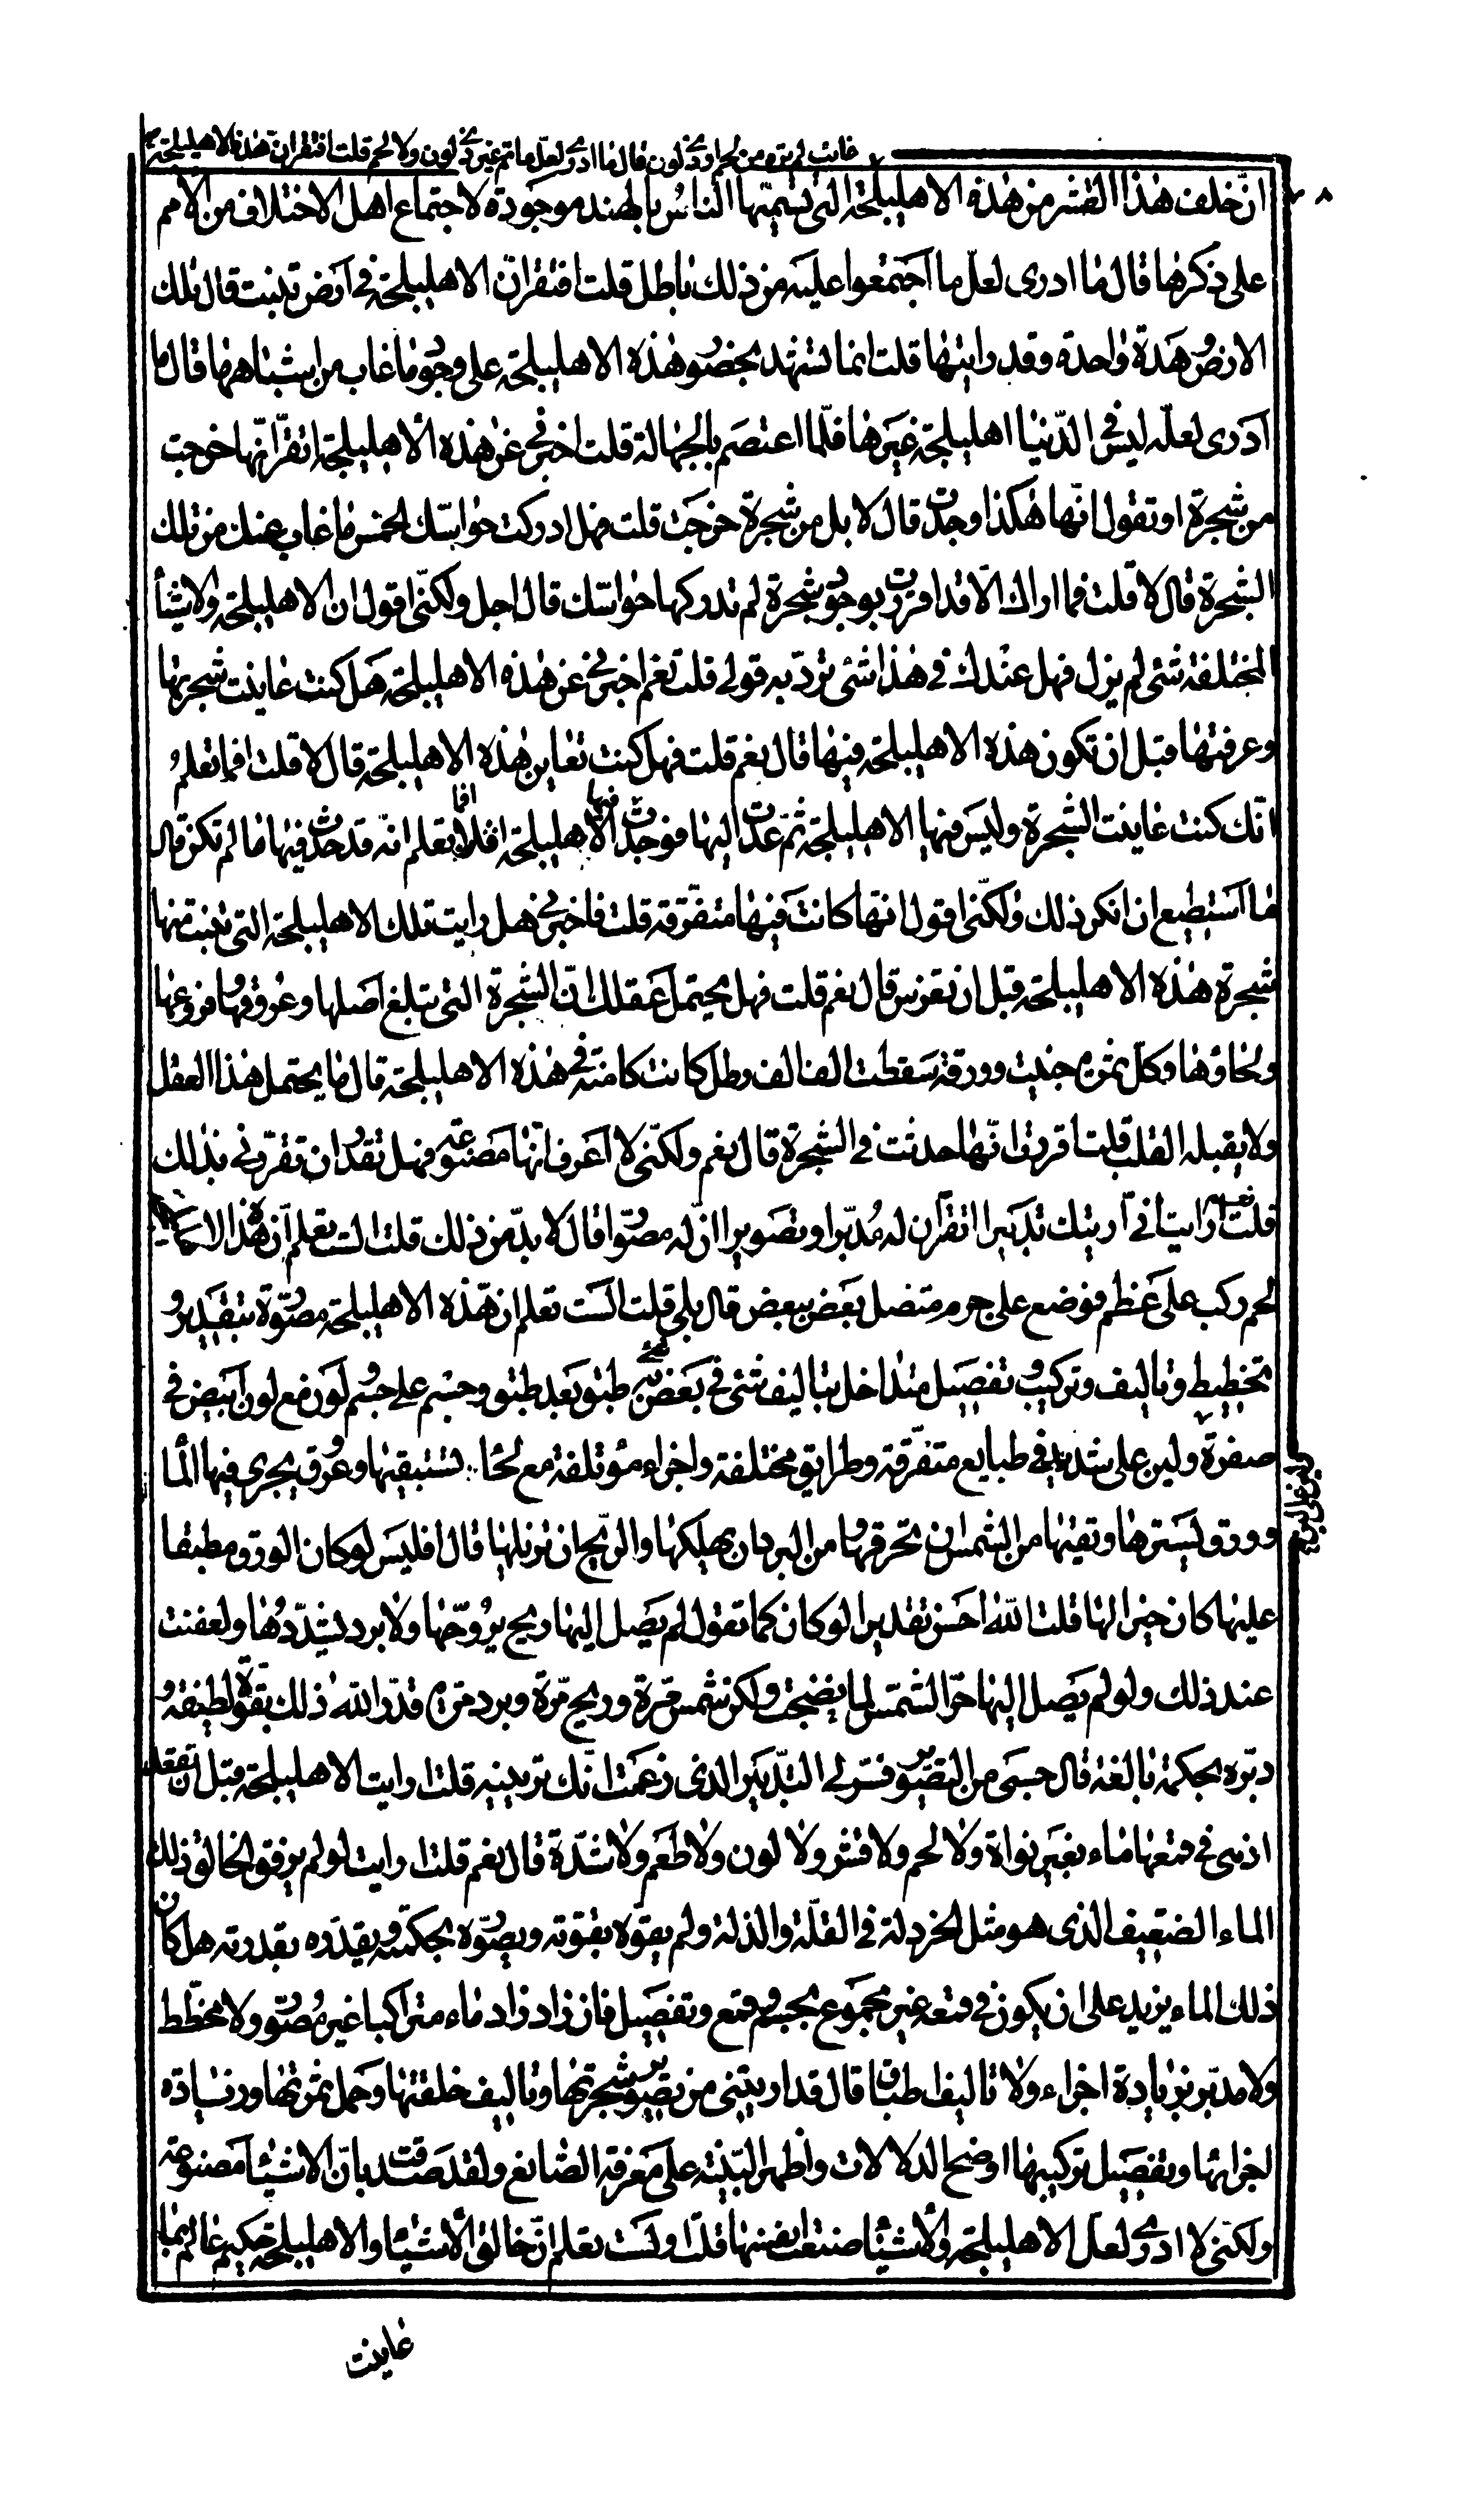 غائب لم يتم من لحم او ذي لون قال ما ادري لعل ما ثم غير ذي لون ولا لحم قلت افتقر ان هذه الاهليلجة
ان خلف هذا القشر من هذه الاهليلجة التى تسميتها الناس بالهند موجودة لاجتماع اهل الاختلاف من الامم
على ذكرها قال ما ادرى لعل ما اجتمعوا عليه من ذلك باطل قلت افتقر ان الاهليلجة في ارض تنبت قال تلك
الارض هذه واحدة وقد رايتها قلت انما تشهد بحضور هذه الاهليلجة على وجود ما غاب من اشباهها قال ما
ادرى لعله ليس في الدنيا اهليلجة غيرها فلما اعتصم بالجهالة قلت اخبرني عن هذه الاهليلجة اتقر انها خرجت
من شجرة او تقول انها هكذا وجدت قال لا بل من شجرة خرجت قلت فهل ادركت حواسك الخمس ما غاب عنك من تلك
الشجرة قال لا قلت فما اراك الا قد اقررت بوجود شجرة لم تدركها حواسك قال اجل ولكني اقول ان الاهليلجة والاشياء
المختلفة شئ لم يزل فهل عندك في هذا شئ ترد به قولي قلت نعم اخبرني عن هذه الاهليلجة هل كنت عاينت شجرتها
وعرفتها قبل ان تكون هذه الاهليلجة فيها قال نعم قلت فهل كنت تعاين هذه الاهليلجة قال لا قلت افما تعلم
انك كنت عاينت الشجرة وليس فيها الاهليلجة ثم عدت اليها فوجدت فيها الاهليلجة افما تعلم انه قد حدث فيها ما لم تكن قال
ما استطيع ان انكر ذلك ولكني اقول انها كانت فيها متفرقة قلت فاخبرني هل رايت تلك الاهليلجة التى تنبت منها
شجرة هذه الاهليلجة قبل ان تغرس قال نعم قلت فهل يحتمل عقلك ان الشجرة التى تبلغ اصلها وعروقها وفروعها
ولحاؤها وكل ثمرة جنيت وورقة سقطت الف الف رطل كانت كامنة في هذه الاهليلجة قال ما يحتمل هذا العقل
ولا يقبله القلب قلت اقررت انها حدثت في الشجرة قال نعم ولكني لا اعرف انها مصنوعة فهل تقدر ان تقررني بذلك
قلت نعم ارايت اني اريتك تدبيرا اتقر ان له مدبرا وتصويرا ان له مصورا قال لا بد من ذلك قلت الست تعلم ان هذا الاهليلجة
لحم ركب على عظم فوضع على جوم متصل بعض ببعض قال بلى قلت الست تعلم ان هذه الاهليلجة مصورة بتقدير و
تخطيط وتاليف وتركيب وتفصيل متداخل بتاليف شئ في بعض شئ به طبق بعد طبق وجسم على جسم لون مع لون ابيض في
صفرة ولين على شديد في طبايع متفرقة وطرايق مختلفة واجزاء مؤتلفة مع لحاء تستبقيها وعرق يجرى فيها الماء
وورق يسترها وتقيها من الشمس ان تحرقها ومن البرد ان يهلكها والريح ان تزيلها قال افليس لو كان الورق مطبقا
عليها كان خيرا لها قلت الله احسن تقديرا لو كان كما تقول لم يصل اليها ريح يروحها ولا برد يشددها ولعفنت
عند ذلك ولو لم يصل اليها حر الشمس لما نضجت ولكن شمس مرة وريح مرة وبرد مرة قدر الله ذلك بقوة لطيفة و
دبره بحكمة بالغة قال حسبى من التصوير فسر لي التدبير الذى زعمت انك تريينه قلت ارايت الاهليلجة قبل ان تعقد
اذ هى في قمعها ماء بغير نواة ولا لحم ولا قشر ولا لون ولا طعم ولا شدة قال نعم قلت ارايت لو لم يرفق الخالق ذلك
الماء الضعيف الذى هو مثل الخردلة في القلة والذلة ولم يقوه بقوته ويصوره بحكمته ويقدره بقدرته هل كان
ذلك الماء يزيد على ان يكون في قمعه غير مجموع بجسم وقمع وتفصيل فان زاد زاد ماء متراكبا غير مصور ولا مخطط
ولا مدبر بزيادة اجزاء ولا تاليف اطباق قال قد اريتني من تصوير شجرتها وتاليف خلقتها وحمل ثمرتها وزيادة
اجزائها وتفصيل تركيبها اوضح الدلالات واظهر البينة على معرفة الصانع ولقد صدقت بان الاشياء مصنوعة
ولكني لا ادري لعل الاهليلجة والاشياء صنعت انفسها قلت اولست تعلم ان خالق الاشياء والاهليلجة حكيم عالم بما
عاينت